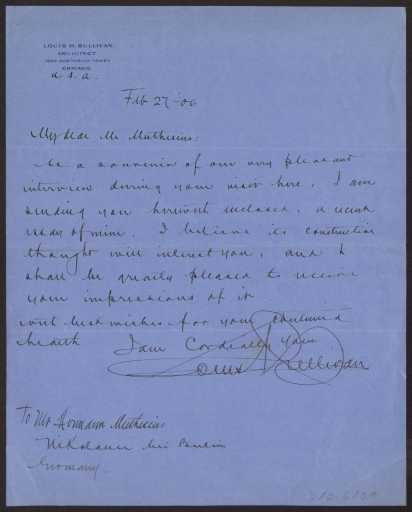 LOUIS H. SULLIVAN,
ARCHITECT
CHICAGO
U. S. A.
Feb 27-06
My dear Mr Muthesius:
As a souvenir of our very pleasant
interview during your visit here, I am
sending you herewith enclosed, a recent
essay of mine. I believe its constructive
thought will interest you, and I
shall be greatly pleased to receive
your impressions of it
with best wishes for your continued
health
I am Cordially Yours
Louis H Sullivan
To Mr Hermann Muthesius
Nikolassee bei Berlin
Germany.